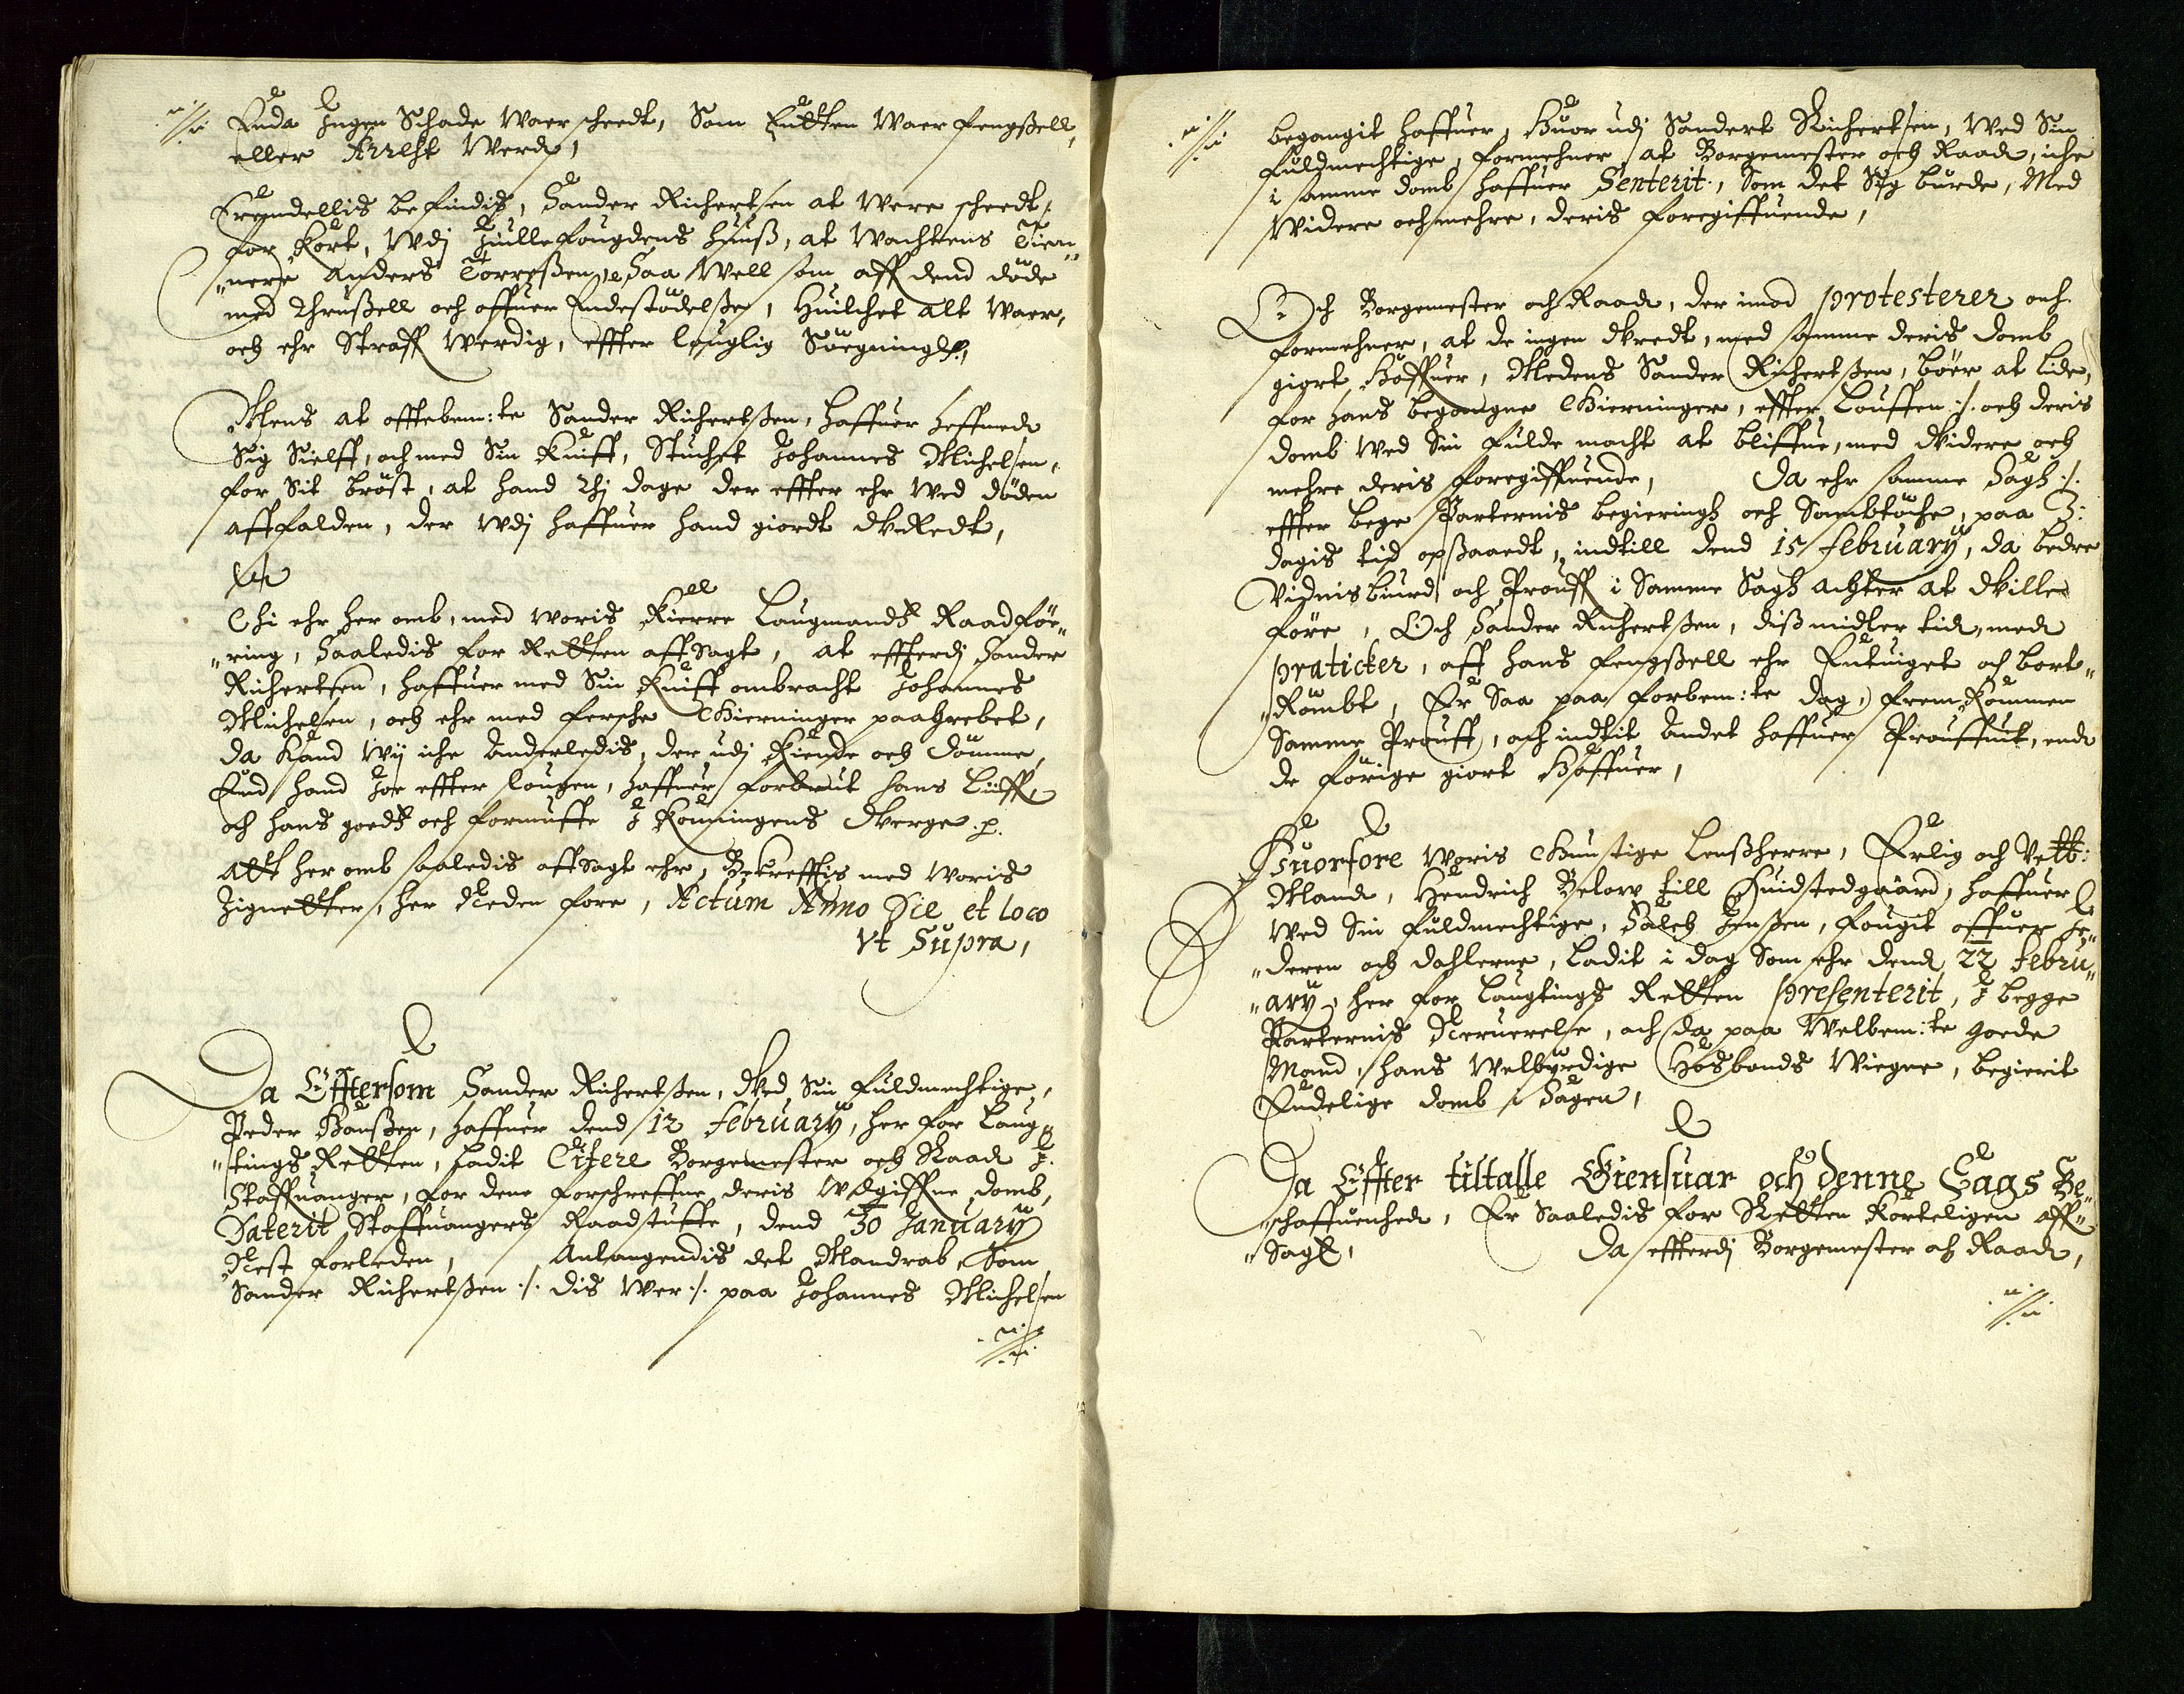 Enda Ingen Schade waer scheedt, Som Endten waer fengsßell,
eller Arrest werd,
Fremdellis befindis, Sander Richertsen at were scheedt,
for kort, wdj Juulle fougdens huuß, at wachtens Tien¬
"nere Anders Torreßen, Saa well som aff dend döde
med thrusßell och offuer Endestödelße, huilchet alt waer,
och ehr straff werdig, effter louglig Söegning,
Mens at offtebem:te Sander Richertßen, haffuer heffned
Sig Sielff, och med Sin kniff, stuchet Johannes Michelsen,
for sit bröst, at hand thj dage der effter ehr wed döden
affalden, der wdj haffuer hand giordt vRedt,
Thi ehr her omb, med woris kierre Laugmands Raadför¬
"ring, Saaledis for Retten aff Sagt, at effterdj Sander
Richertsen, haffuer med Sin kniff ombracht Johannes
Michelsen, och ehr med fersche Gierninger paagrebet,
da kand wij iche anderledis, der udj kiende och dömme,
End hand Jo effter lougen, haffuer forbrut hans liiff,
och hans goeds och formuffe J kongingens verge.
Att her omb saaledis aff Sagt ehr, Bekrefftis med woris
Zignetter, her neden fore, Actum Anno Die et loco
vt Supra,
Da Efftersom Sander Richertßen, ved Sin fuldmechtige,
Peder Hanßen, haffuer dend 12 February, her for Laug¬
"tings Retten, ladit Citere Borgemester och Raad J
Staffuanger, for dene forschreffne deris wdgiffne domb,
Daterit Staffuangers Raadstuffe, dend 30 January
Nest forleden, Anlangendis det Mandrab, Som
Sander Richertßen ./. dis wer ./. paa Johannes Michelsen
begangit haffuer, Huor udj Sandert Richertsen, wed Sin
fuldmechtige, formehner, at Borgemester och Raad, iche
i samme domb haffuer Senterit, som det Sig burde, Med
widere och mehre, deris foregiffuende,
Och Borgemester och Raad, der imod protesterer och
formehner, at de ingen vredt, med samme deris domb
giort Haffuer, Medens Sander Richertßen, bör at lide,
for hans begangne Gierninger, effter Louffen ./. och deris
domb wed sin fulde macht at bliffue, med videre och
mehre deris foregiffuende, Da ehr samme Sagh ./.
effter bege Parternis begieringh och Sambtöche, paa 3:
dagis tid opsaaedt, indtill dend 15 February, da bedre
vidnisbiurd och Prouff i Samme Sagh achter at ville
före, Och Sander Richertßen, dißmidler tid, med
praticter, aff hans fengsßell ehr Entuiget och bort¬
"Römbt, Er Saa paa forbem:te dag, frem kommen
Samme Prouff, och indtit andet haffuer Prouffuit, end
de forrige giort Haffuer,
Huorfore woris Gunstige Lensherre, Erlig och Velb:
Mand, Hendrich Below till Huidstedgaard, haffuer
wed Sin fuldmechtige, Palch Jensßen, fougit offuer Je¬
"deren och dahlerne, ladit i dag som ehr dend 22 Febru¬
"ary, her for Laugtings Retten presenterit, J begge
Parternis Neruerelse, och da paa Welbem:te goede
Mand, hans Welbyrdige Hosbonds Wiegne, begierit
Endelige domb i Sagen,
Da Effter tiltalle Giensuar och denne Sags Be¬
"schaffuenhed, Er Saaledis for Retten Korteligen aff¬
"Sagt, Da effterdj Borgemester och Raad,